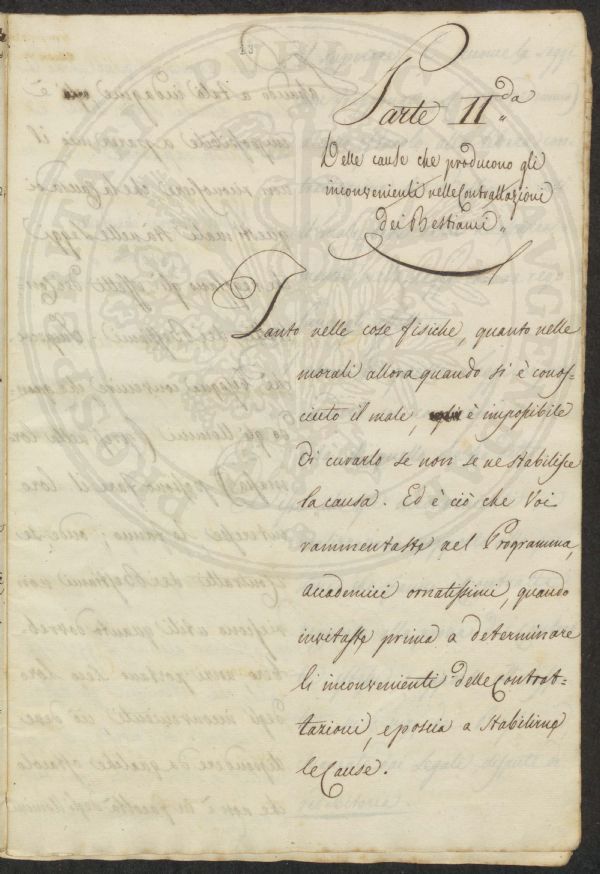 13
Parte II.da
Delle cause che producono gli
inconvenienti nelle Contrattazioni
dei Bestiami
Tanto nelle cose fisiche, quanto nelle
morali allora quando si è conos-
ciuto il male, è impossibile
di curarlo se non se ne stabilisce
la causa. Ed è ciò che Voi
rammentaste nel Programma,
Accademici ornatissimi, quando
invitaste prima a determinare
li inconvenienti delle Contrat=
tazioni, e poscia a stabilirne
le Cause.